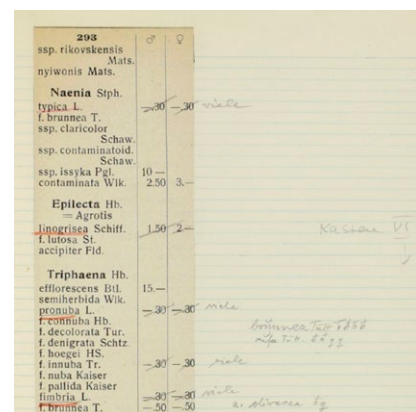 293 ♂ ♀
ssp. rikovskensis
Mats.
nyiwonis Mats.
Naenia Stph.
typica L. —.30 —.30 viele
f. brunnea T.
ssp. claricolor
Schaw.
ssp. contaminatoid.
Schaw.
ssp. issyka Pgl. 10 —
contaminata Wlk. 2.50 3.—
Epilecta Hb.
= Agrotis
linogrisea Schiff. 1.50 2 — Kasten VI
f. lutosa St.
accipiter Fld.
Triphaena Hb.
efflorescens Btl. 15.—
semiherbida Wlk.
pronuba L. —.30 —.30 viele
f. connuba Hb.
f. decolorata Tur.
f. denigrata Schtz.
f. hoegei HS.
f. innuba Tr. —.30 —.30 viele
f. nuba Kaiser
f. pallida Kaiser
fimbria L. —.30 —.30 viele
f. brunnea T. —.50 —.50